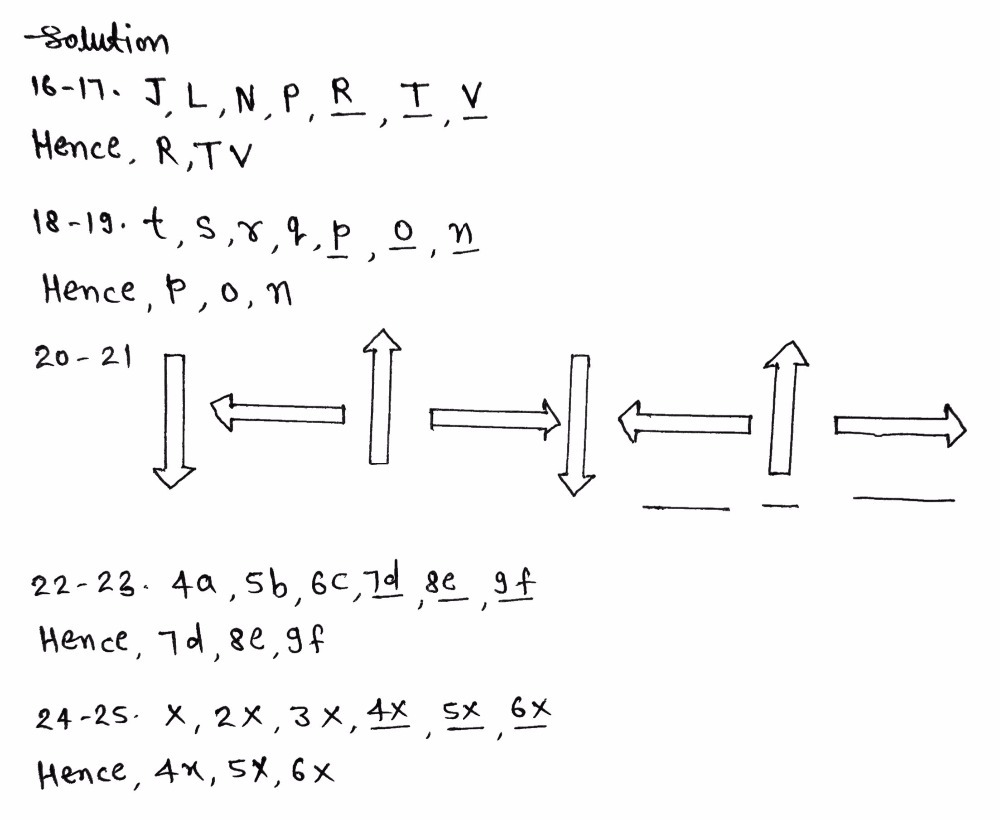 Solution
16-17. J, L, N, P, R, T, V
Hence, R, T V
18-19. t, s, r, q, p, o, n
Hence, p, o, n
20-21
22-23. 4a, 5b, 6c, 7d, 8e, 9f
Hence, 7d, 8e, 9f
24-25. x, 2x, 3x, 4x, 5x, 6x
Hence, 4x, 5x, 6x